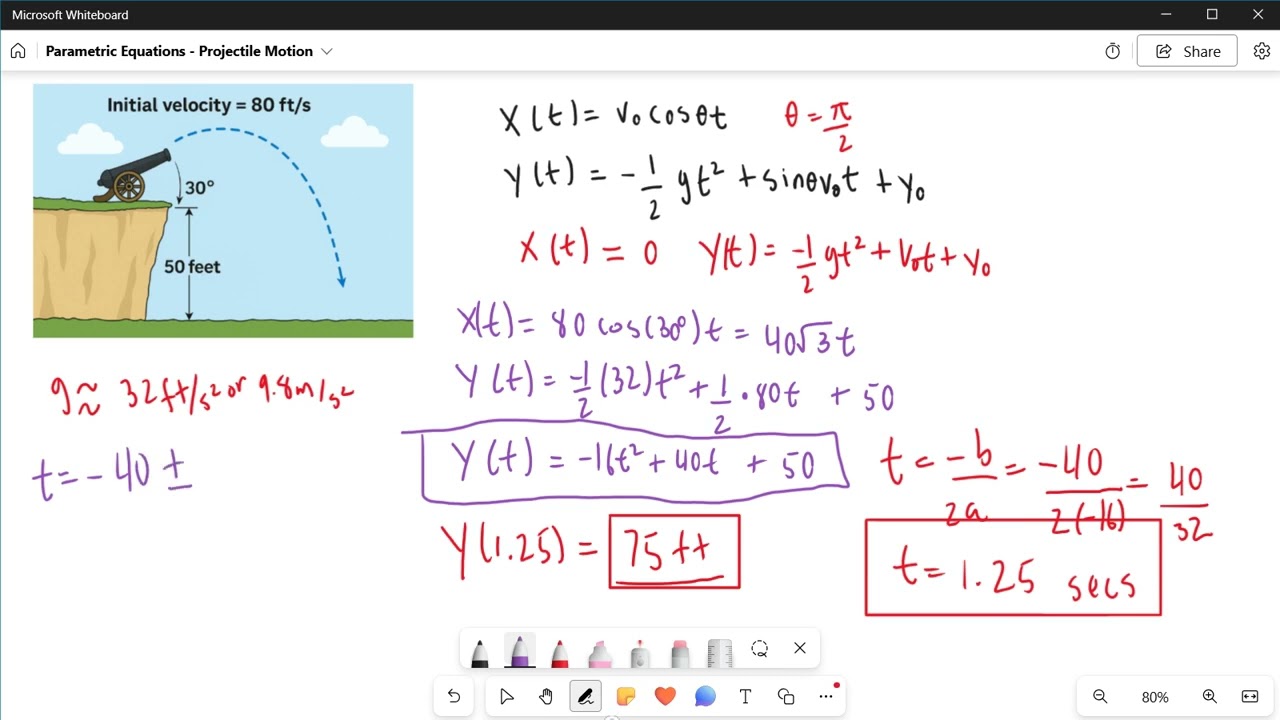 Microsoft Whiteboard
Parametric Equations - Projectile Motion
Share
Initial velocity = 80 ft/s
30°
50 feet
X(t) = v₀cosθt θ = π/2
Y(t) = -1/2 gt² + sinθv₀t + y₀
X(t) = 0 Y(t) = -1/2 gt² + V₀t + y₀
X(t) = 80 cos(30°)t = 40√3t
Y(t) = -1/2(32)t² + 1/2 • 80t + 50
g ≈ 32ft/s² or 9.8m/s²
Y(t) = -16t² + 40t + 50
t = -40 ±
t = -b/2a = -40/2(-16) = 40/32
Y(1.25) = 75ft
t = 1.25 secs
T
80%